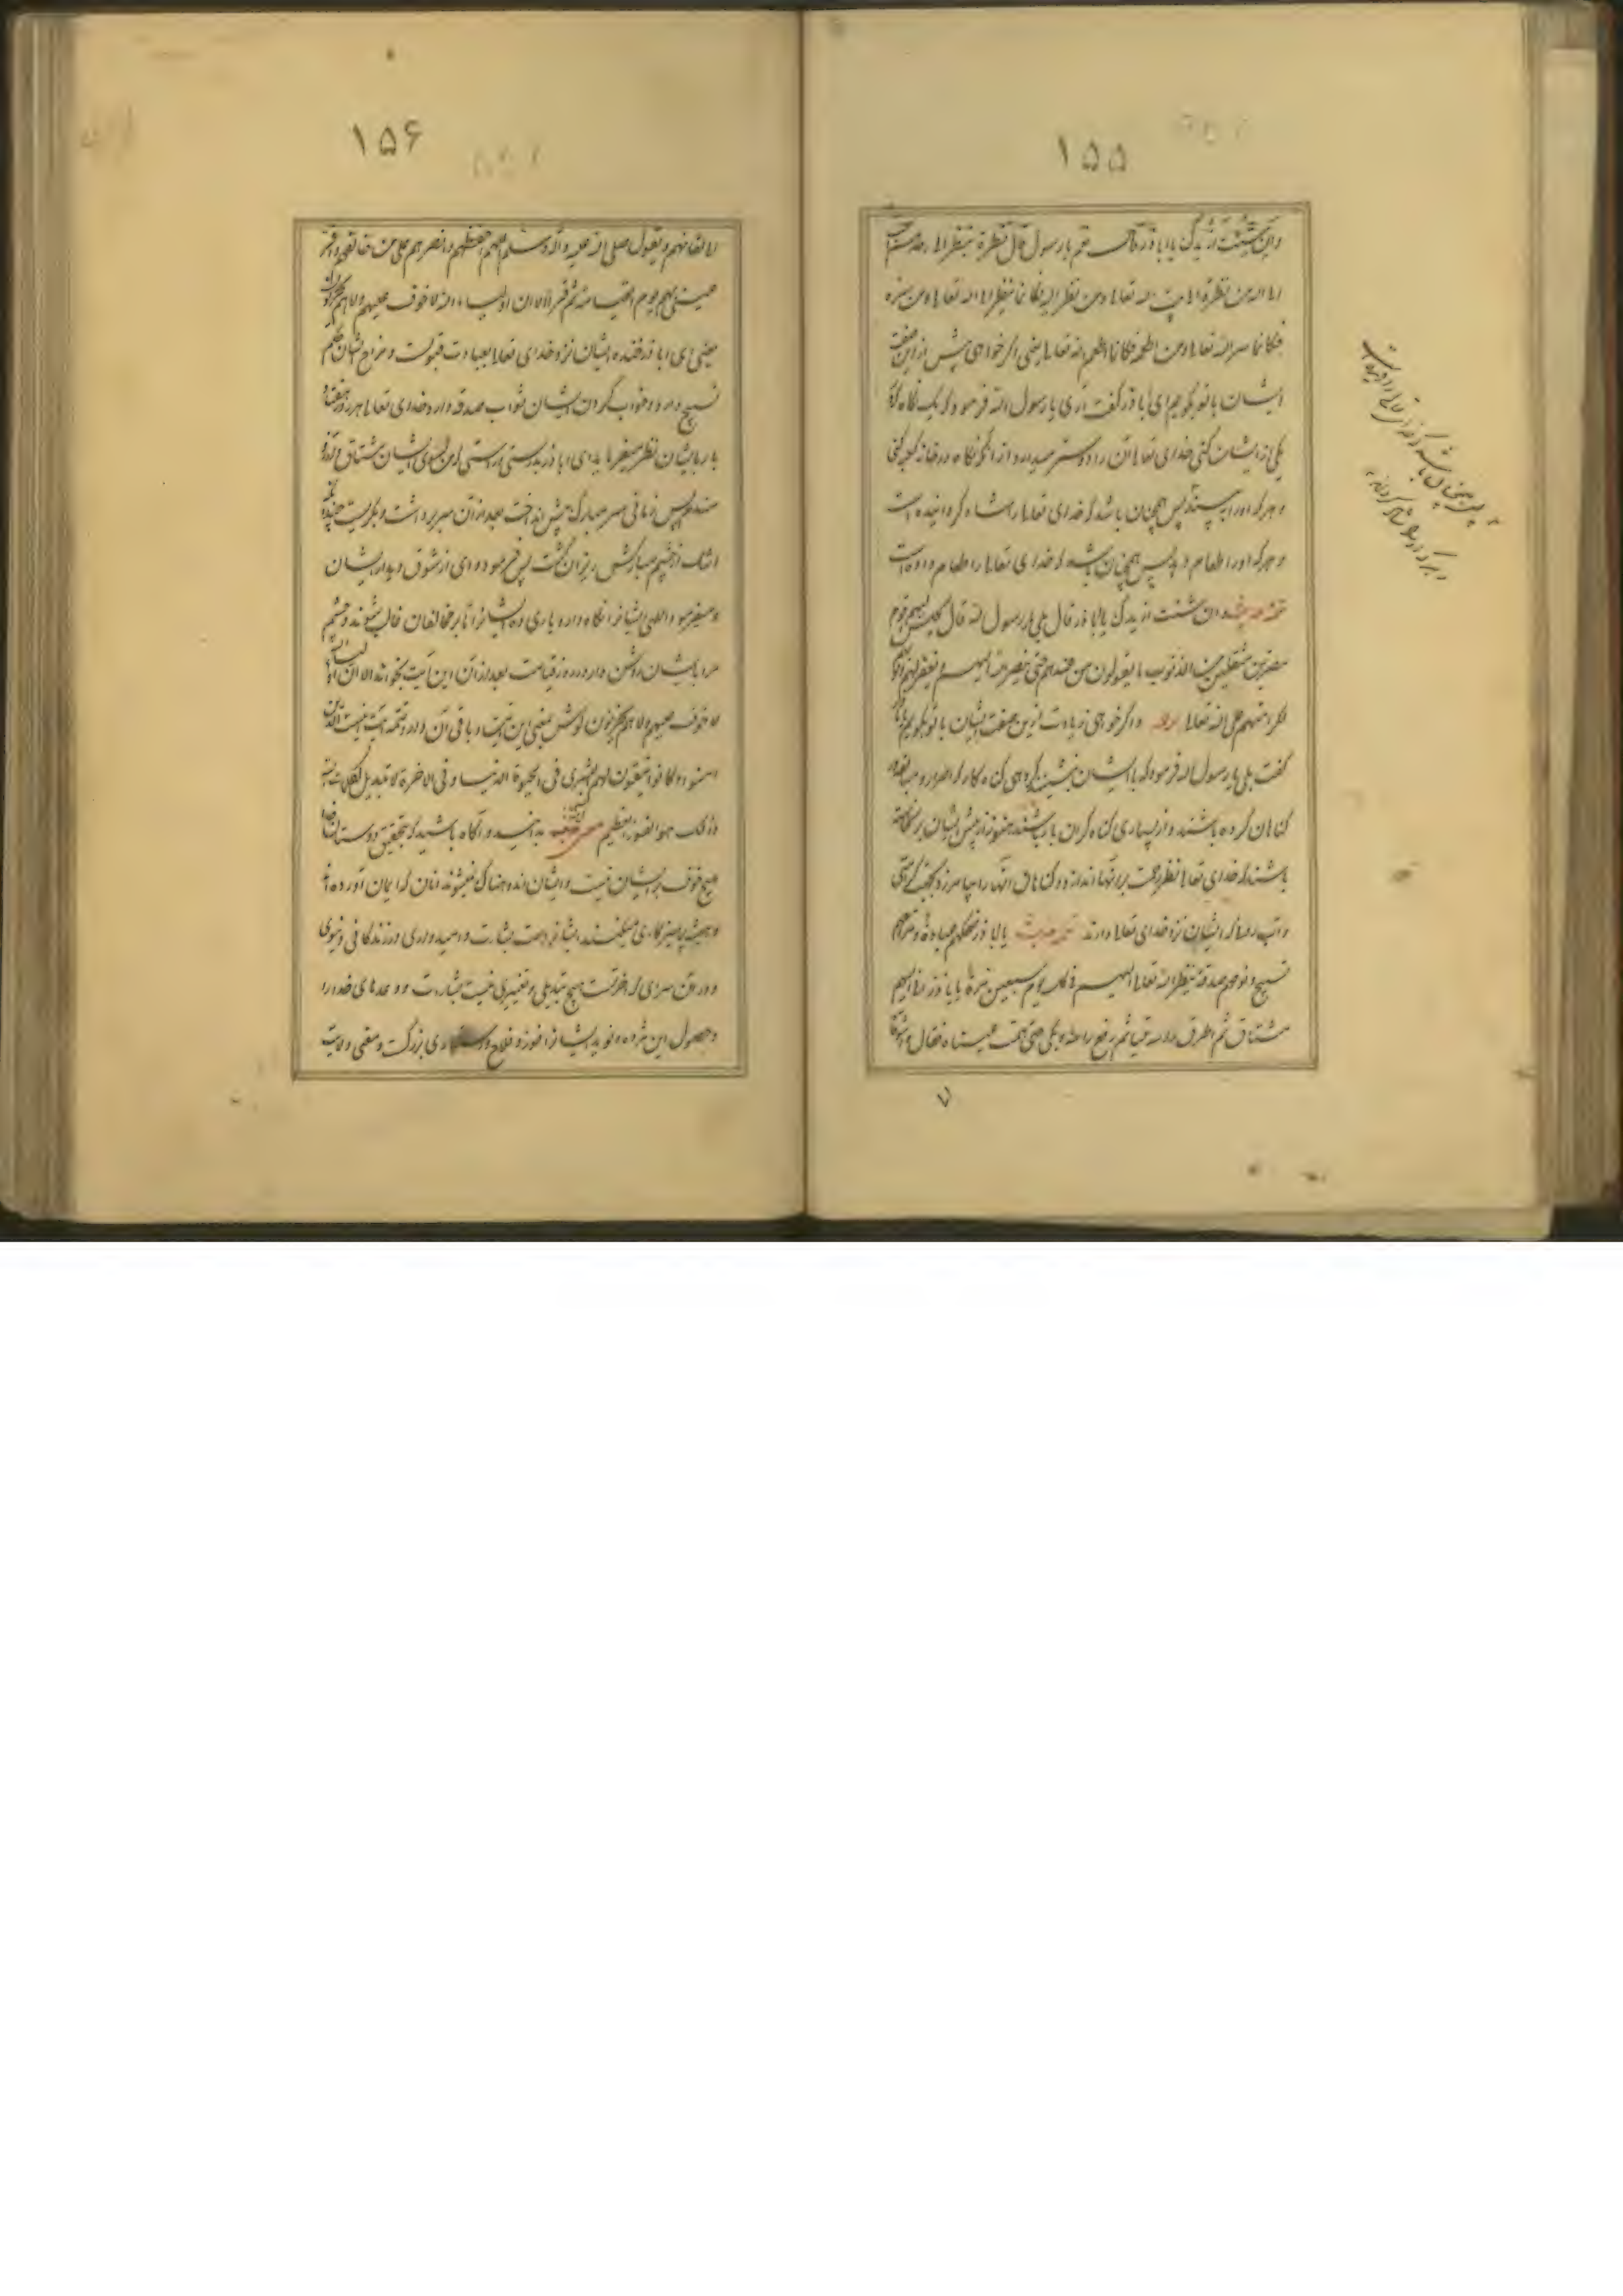 ۱۵۵
وان شئت ازیدک یا ابا ذر قال نعم یا رسول قال نظرة ینظر الی احد منهم
احب الی الله من نظرة الی بیت الله تعالی ومن نظر الیه فکانما ینظر الی الله تعالی ومن سره
فکانما سر الله تعالی ومن اطعمه فکانما اطعم الله تعالی یعنی اگر خواهی پیش ازین صفت
ایشان با تو بگویم ای ابا ذر گفت آری یا رسول الله فرمود که یک نگاه که
یکی از ایشان کنی خدای تعالی آن را دوستر میدارد از آنکه نگاه در خانه کعبه کنی
و هر که او را پس همچنان باشد که خدای تعالی را شاد گردانیده است
و هر که او را طعام دهد پس همچنان باشد که خدای تعالی را طعام داده است
تتمه حدیث وان شئت ازیدک یا ابا ذر قال بلی یا رسول الله قال یجلس الیهم قوم
مصرین مثقلین من الذنوب ما یقومون من عندهم حتی ینظر الله الیهم و یغفر لهم ذنوبهم
لکرامتهم علی الله تعالی و اگر خواهی زیادت ازین صفت ایشان با تو بگویم
گفت بلی یا رسول الله فرمود که با ایشان بنشیند گروهی گناه کار که اصرار و مبالغه
گناهان کرده باشند و از بسیاری گناه گران بار باشند هنوز از پیش ایشان برنخاسته
باشند که خدای تعالی نظر رحمت بر آنها اندازد و گناهان آنها را بیامرزد بجهت کرامتی
که ایشان نزد خدای تعالی دارند تتمه حدیث یا ابا ذر ضحکهم عبادة و مزاحهم
تسبیح و نومهم صدقة ینظر الله تعالی الیهم فی کل یوم سبعین مرة یا ابا ذر انا الیهم
مشتاق ثم اطرق راسه ملیا ثم رفع راسه و بکی حتی عیناه فقال واشوقا
۱۵۶
الی لقائهم و یقول صلی الله علیه و اله و سلم اللهم احفظهم و انصرهم علی من خالفهم و اقر
عینی بهم یوم القیامة ثم قرأ الا ان اولیاء الله لا خوف علیهم ولا هم یحزنون
یعنی ای ابا ذر خنده ایشان نزد خدای تعالی بعبادت قبولست و مزاح ایشان حکم
تسبیح دارد و خواب کردن ایشان ثواب صدقه دارد خدای تعالی هر روز هفتاد
بار بایشان نظر میفرماید ای ابا ذر بدرستی و راستی که من بسوی ایشان مشتاق و آرزو
مندم پس زمانی سر مبارک پیش انداخت بعد از آن سر برداشت و بگریست چندانکه
اشک از چشم مبارکش ریزان گشت پس فرمود وای از شوق دیدار ایشان
و میفرمود الهی ایشانرا نگاه دار و یاری ده ایشانرا تا بر مخالفان غالب شوند و چشم
مرا بایشان روشن دار در روز قیامت بعد از آن این آیت بخواند الا ان اولیاء الله
لا خوف علیهم ولا هم یحزنون گوش بمعنی این آیت و باقی آن دار و تتمه آیت اینست الذین
امنوا و کانوا یتقون لهم البشری فی الحیوة الدنیا و فی الاخرة لا تبدیل لکلمات الله
ذلک هو الفوز العظیم بدانید و آگاه باشید که بتحقیق دوستان خدا
هیچ خوف بر ایشان نیست و ایشان اندوهناک نمیشوند آنان که ایمان آورده اند
و همیشه پرهیزکاری میکنند ایشانراست بشارت و امیدواری در زندگانی دنیوی
و در آن سرای که آخرتست هیچ تبدیلی و تغییری نیست بشارت و وعدهای خدا را
و حصول این مژده و نوید ایشانرا فوز و فلاح و رستگاری بزرگست و معنی ولایت